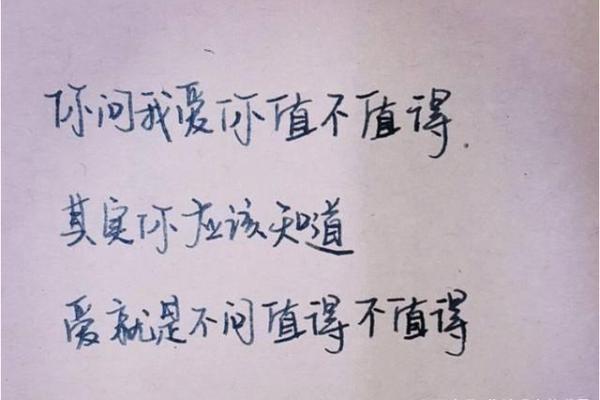 你问我爱你值不值得.
其实你应该知道
爱就是不问值得不值得